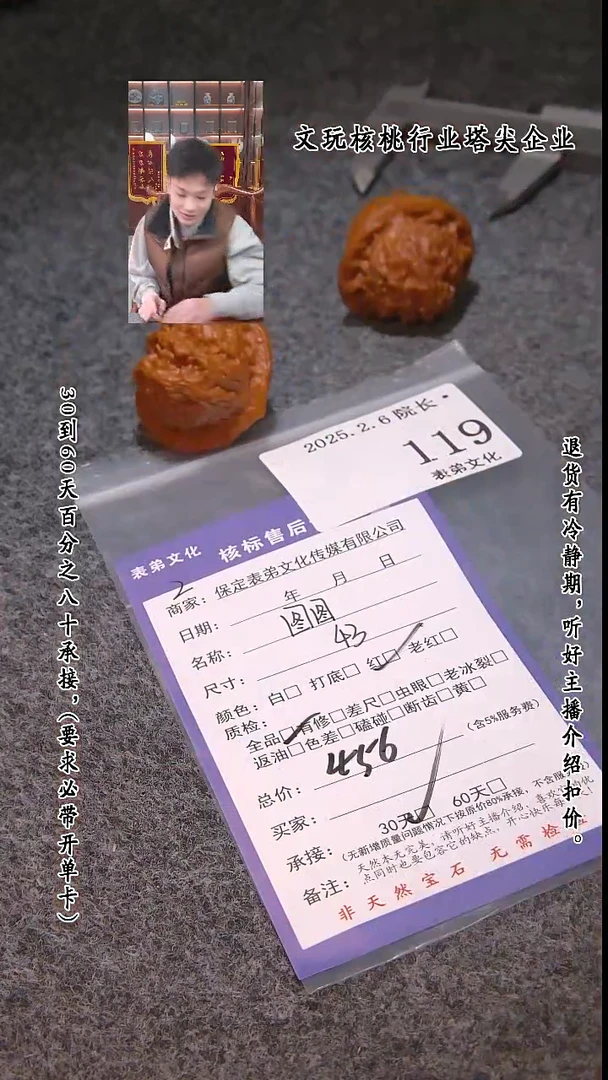 文玩核桃行业塔尖企业
30到60天百分之八十承接,(要求必带开单卡)
退货有冷静期,听好主播介绍扣价。
2025.2.6 院长·
119
表弟文化
表弟文化 核标售后
商家: 保定表弟文化传媒有限公司
日期: 年 月 日
名称: 图图
尺寸: 43
颜色: 白□ 打底□ 红□ 老红□
质检: 全品□ 有修□ 差尺□ 虫眼□ 老冰裂□
返油□ 色差□ 磕碰□ 断齿□ 黄□
总价: 456 (含5%服务费)
买家:
承接: 30天□ 60天□
(无新增质量问题情况下按原价80%承接,不含服
备注: 天然木无完美,请听好主播介绍,喜欢它的优
点同时也要包容它的缺点,开心快乐每
非天然宝石 无需检